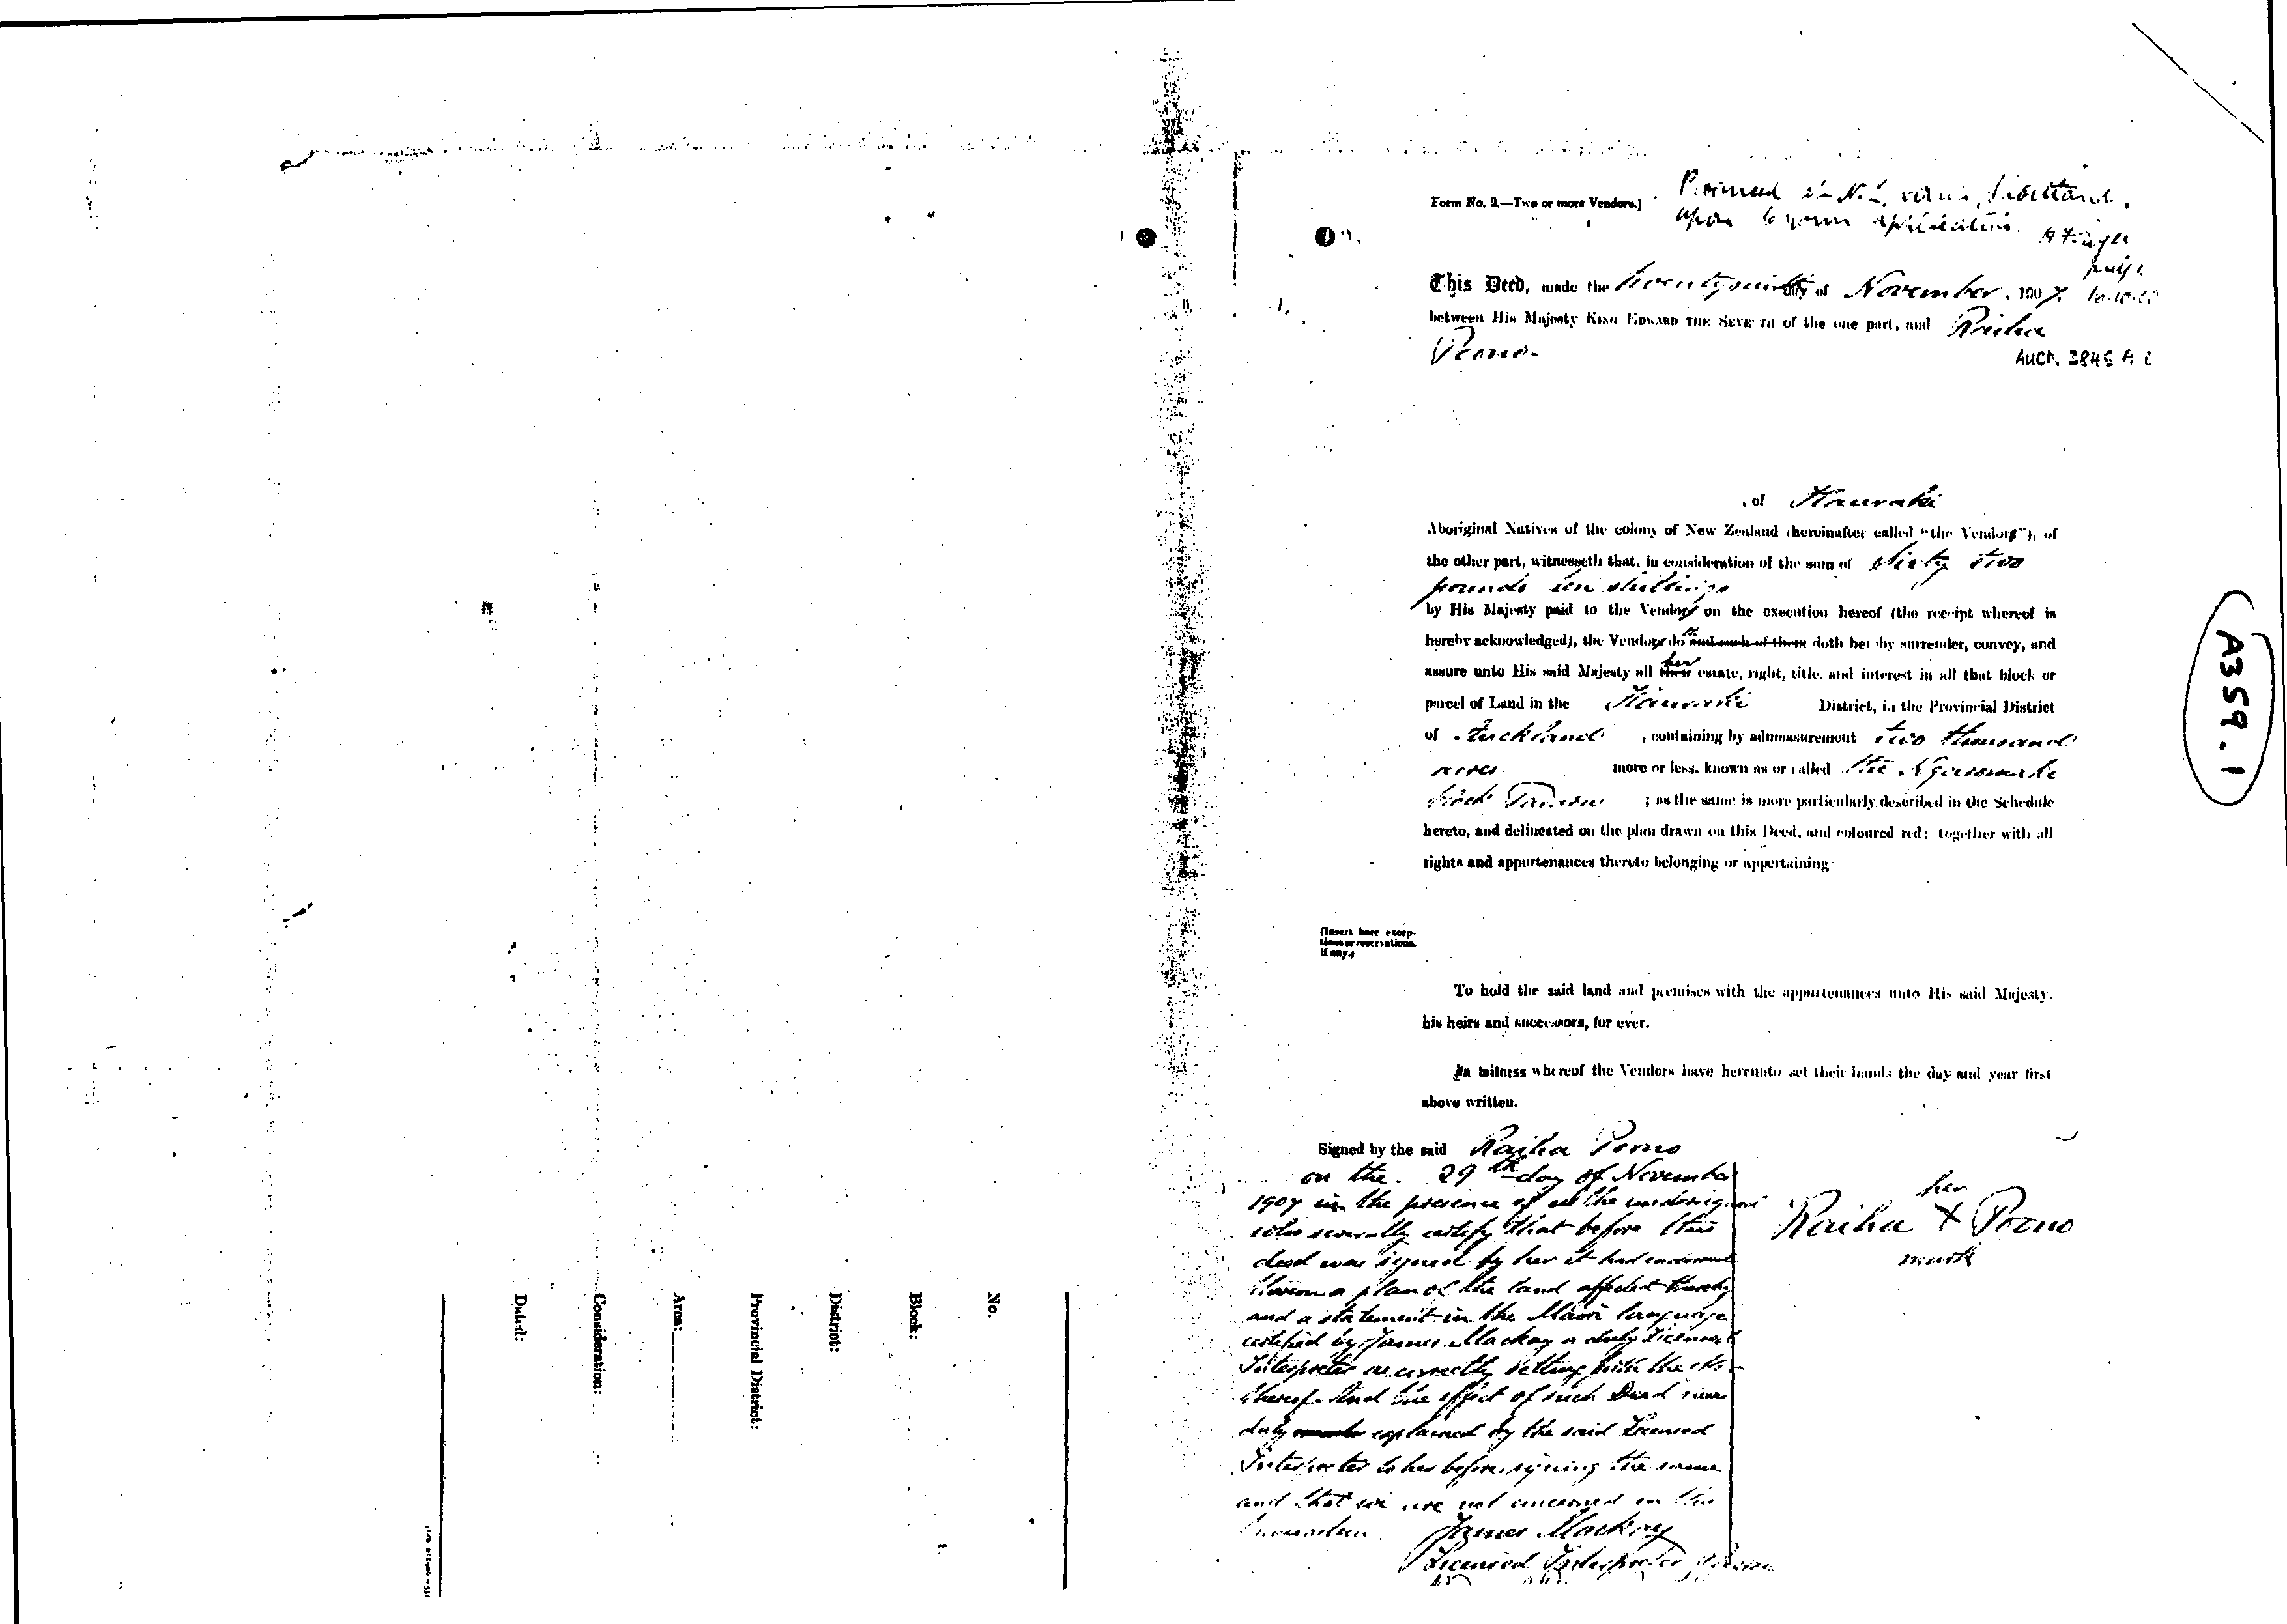 Form No. 9.—Two or more Vendors.]
upon application
This Deed, made the twentyninth day of November, 1907
between His Majesty KING EDWARD THE SEVENTH of the one part, and Raiha
Poono.
AUCK. 3845
, of Hauraki
Aboriginal Natives of the colony of New Zealand (hereinafter called "the Vendors"), of
the other part, witnesseth that, in consideration of the sum of Sixty two
pounds ten shillings
by His Majesty paid to the Vendors on the execution hereof (the receipt whereof is
hereby acknowledged), the Vendors do and each of them doth hereby surrender, convey, and
assure unto His said Majesty all their her estate, right, title, and interest in all that block or
parcel of Land in the Hauraki District, in the Provincial District
of Auckland, containing by admeasurement two thousand
acres more or less, known as or called the
block ; as the same is more particularly described in the Schedule
hereto, and delineated on the plan drawn on this Deed, and coloured red; together with all
rights and appurtenances thereto belonging or appertaining:
(Insert here excep-
tions or reservations,
if any.)
To hold the said land and premises with the appurtenances unto His said Majesty,
his heirs and successors, for ever.
In witness whereof the Vendors have hereunto set their hands the day and year first
above written.
Signed by the said Raiha Poono
on the 29th day of November
1907 in the presence of us the undersigned
who severally certify that before this
deed was signed by her it had endorsed
thereon a plan of the land affected thereby
and a statement in the Maori language
certified by James Mackay a duly Licensed
Interpreter as correctly setting forth the
thereof And the effect of such Deed was
duly explained by the said Licensed
Interpreter to her before signing the same
and that we are not concerned in the
transaction.
her
Raiha X Poono
mark
James Mackay
Licensed Interpreter
A359.1
No.
Block:
District:
Provincial District:
Area:
Consideration:
Dated: